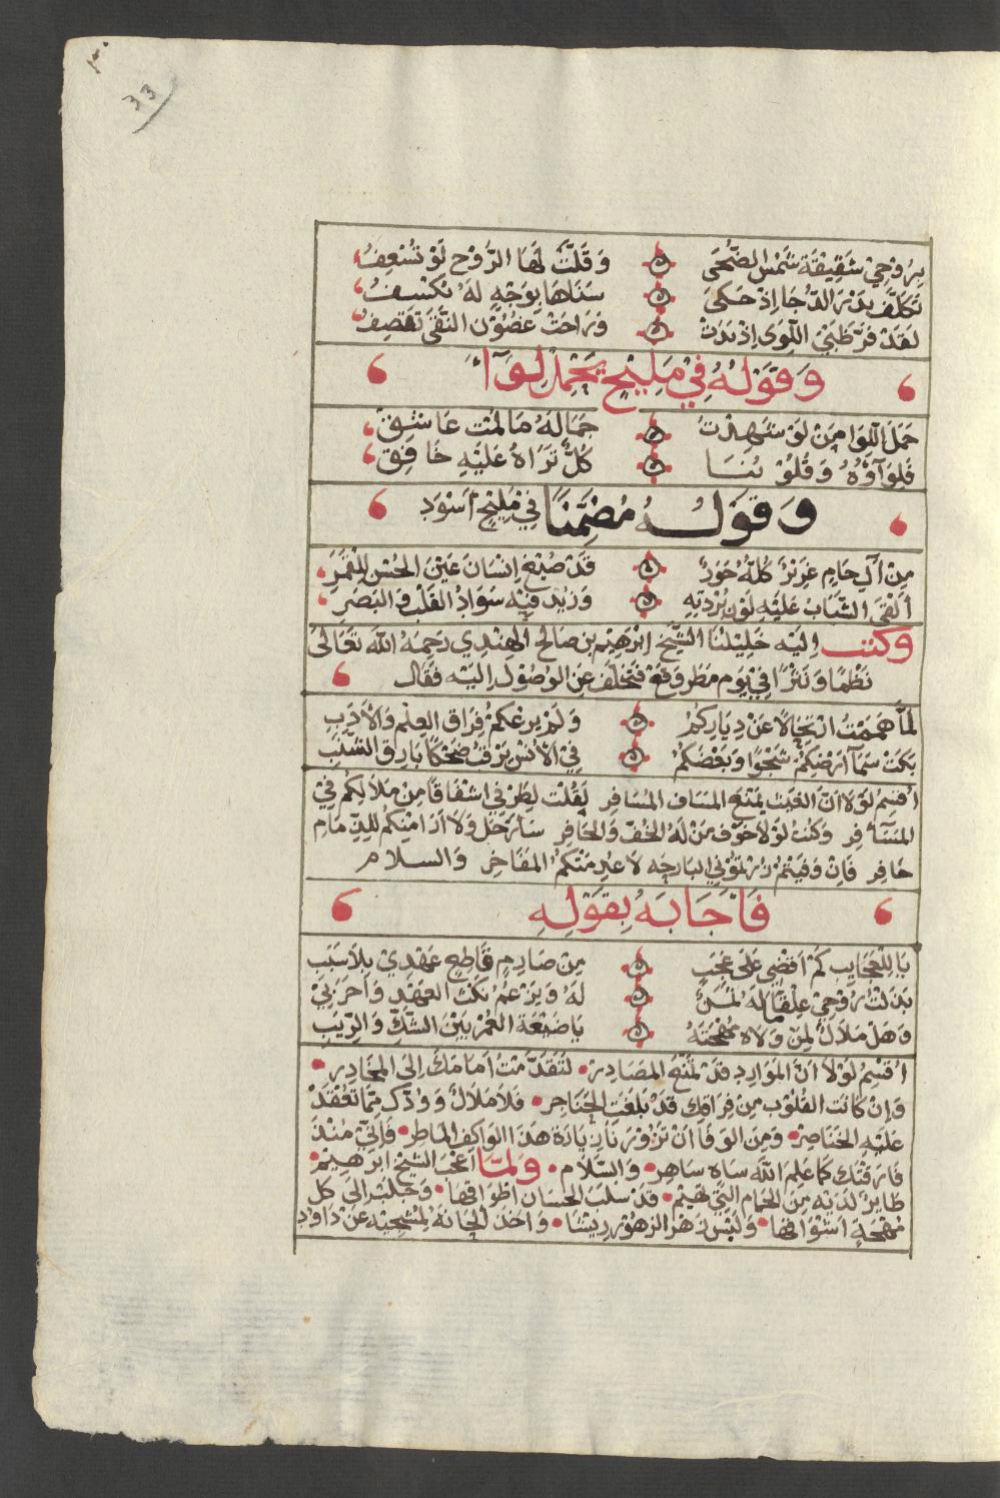 33
بِرُوحِيْ شَقِيقَة شَمْس الضُّحَى وَقَلَّتْ لَهَا الرُّوْح لَوْ تُسْعِفُ
تَكَلَّفَ بَدْرَ الدُّجَا اِذْ حَكَى سَنَاهَا بِوَجْهٍ لَهُ يَكْسُفُ
لَقَدْ فَرَّ ظَبْيُ اللِّوَى اِذْ بَدَتْ وَرَاحَتْ غصُوْن النَّقَى تَقصِفُ
وَقَوْلهُ فِيْ مَلِيْح يَحْمِل لِوَآءً
حَمَلَ اللِّوَا مِنْ لَوْ شَهِدْتَ جَمَالَهُ مَا لُمْت عَاشِقْ
فَلِوَآؤُهُ وَقُلُوْبُنَا كُلٌّ تَرَاهُ عَلَيْهِ خَافِقْ
وَقَوْلهُ مُضَمِّنًا فِيْ مَلِيْح اَسْوَد
مِنْ اۤلِ حَامٍ غَرِيْرٌ كُلّهُ حَوَرٌ قَدْ صُبْغ اِنْسَان عَيْن الحُسْن لِلْقَمَرِ
اَلْقَى الشَّبَاب عَلَيْهِ لَوْن بُرْدَتِهِ وَزِيْد فِيْه سَوَادُ القَلْب وَالبَصَرِ
وَكتب اِلَيْه خَلِيْلنَا الشَّيْخ اِبْرَهِيْم بن صَالِح الهِنْدِي رَحِمَهُ الله تَعَالَى
نَظْمًا وَنَثْرًا فِيْ يَوْم مَطَر وَقَعَ فَتَخَلَّفَ عَن الوُصُوْل اِلَيْه فَقَال
لَمَّا هَمَمْتُ ارْتِحَالًا عَنْ دِيَارِكُمُ وَلَمْ يرعكُمْ فِرَاق العِلْم وَالأَدَبِ
بَكَتْ سَمَآ اَرْضِكُمْ شَجْوًا وَبَعْضُكُمْ فِيْ الأُنْس يَرْقُبُ ضحْكًا بَارِق الشَّنَبِ
اُقسِمُ لَوْلَا اَنَّ الغَيْث يَمْنَع المسَاف المُسَافِر لَقُلْت اِشْفَاقًا مِنْ مَلَالِكُمْ فِيْ
المَسَافِر وَكُنْتُ لَوْلَا خَوْف مَنْ لَهُ الخُفّ وَالحَافِر سَاَرْحَل وَلَا اَرَا مِنْكُمْ
حَافِر فَاِنْ وَفَيْتُمْ زُرْتمُوْنِي البَارِحه لَا عَدِمَتْكُمُ المَفَاخِر وَالسلام
فَاَجَابَهُ بِقَوْلِهِ
يَا لِلْعَجَايِب كَمْ اَقْضِي عَلَى عَجَبِ مِنْ صَارِمٍ قَاطِعٍ عَهْدِيْ بِلَا سَبَبِ
بَذَلْتُ رُوْحِيْ عِلْقًا لَهُ ثَمَنٌ لَهُ وَيَزْعمُ نَكْثَ العَهْدِ وَا حَرَبِيْ
وَهَلْ مَلَالٌ لِمَنْ وَلَاهُ مُهْجَتَهُ يَا ضَيْعَة العُمْر بَيْنَ الشَّكّ وَالرِّيَبِ
اُقْسِمُ لَوْلَا اَنَّ المَوَارِد قَدْ تَمْنَع المصَادِر لَتَقَدَّمْتُ اَمَامَكَ اِلَى المحَادِر
وَاِنْ كَانَت القُلُوْب مِنْ فِرَاقِك قَدْ بَلَغَت الحَنَاجِر فَلَا مَلَالٌ وَوُدّك مِمَّا تُعْقَدُ
عَلَيْهِ الخَنَاصِر وَمِنَ الوَفَا اَنْ تَزُوْرَنَا زِيَادَة هَذَا الوَاكِف المَاطِر فَاِنِّيْ مُنْذ
فَارَقْتُك كَمَا عَلِمَ الله سَاهٍ سَاهِر وَالسَّلَام وَلَمَّا اَعْجَبَ الشَّيْخَ ابْرَهِيْم
طَايِرٌ لَدَيْهِ مِنَ الحَمَام الَّتِيْ تَهِيْم قَدْ سَلَبَ الحسَان اَطْوَاقهَا وَجَلَبَ اِلَى كُلّ
مُهْجَةٍ اَشْوَاقهَا وَلَبِسَ زَهْر الزّهُوْر رِيْشًا وَاَخَذَ اَلْحَانَهُ المُشْجِيْه عَنْ دَاوُد